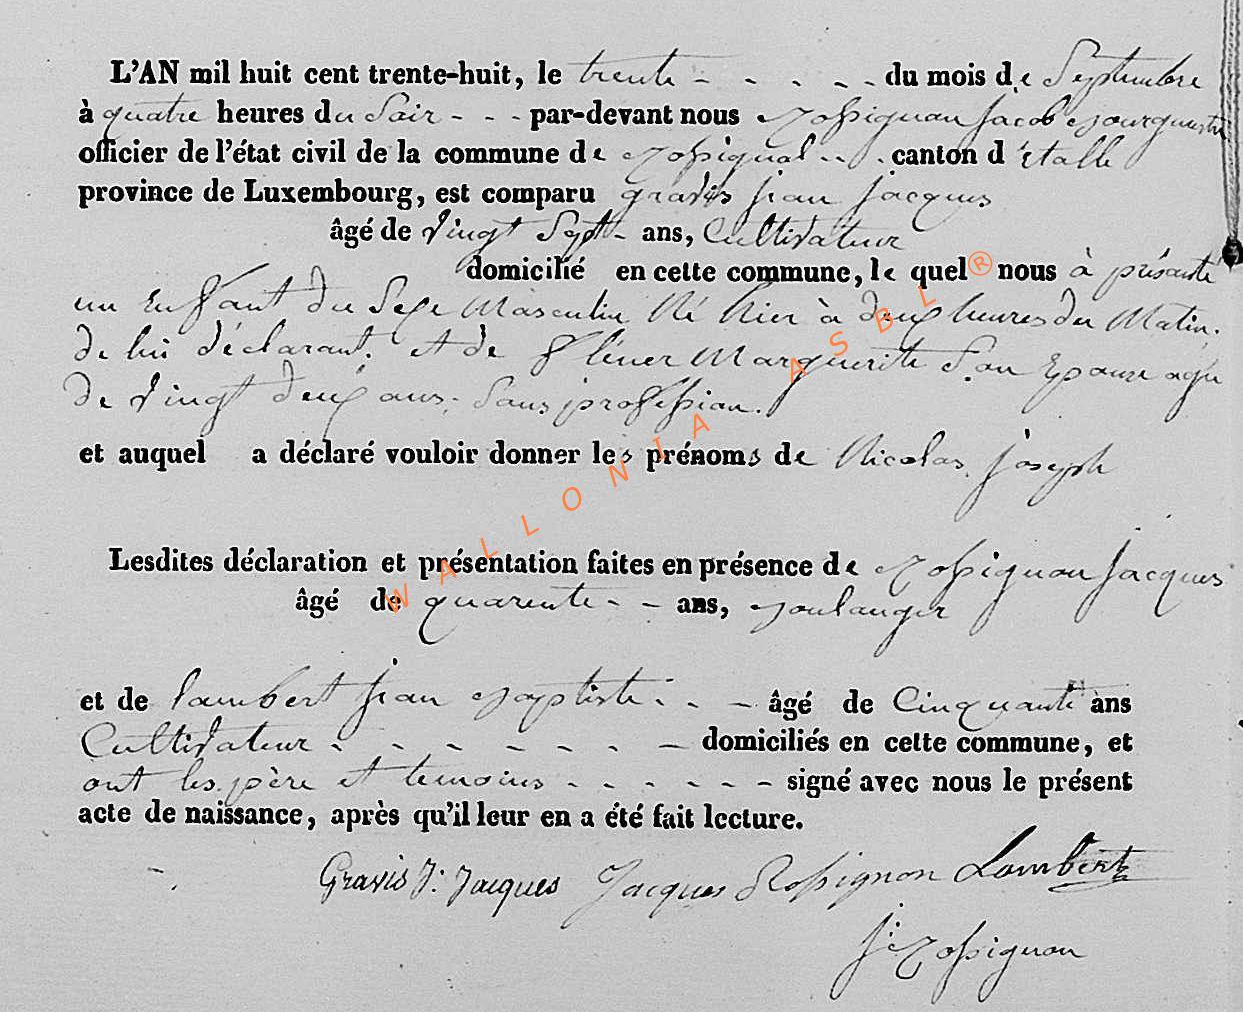 L'AN mil huit cent trente-huit, le trente - - - - - du mois de Septembre
à quatre heures du Soir - - - par-devant nous Rossignon Jacob Bourguestre
officier de l'état civil de la commune de Rossignol - - . canton d'étalle
province de Luxembourg, est comparu gravis jean jacques
âgé de Vingt Sept - ans, Cultivateur
domicilié en cette commune, le quel nous à présenté
un Enfant du Sexe Masculin Né hier à deux heures du Matin.
de lui déclarant. et de Marguerite Son Epouse agée
de Vingt deux ans. Sans profession.
et auquel a déclaré vouloir donner les prénoms de Nicolas joseph
Lesdites déclaration et présentation faites en présence de Rossignon Jacques
âgé de quarente - - ans, Boulanger
et de lambert jean Baptiste - - - âgé de Cinquante ans
Cultivateur - - - - - - - - domiciliés en cette commune, et
ont les père et temoins - - - - - - signé avec nous le présent
acte de naissance, après qu'il leur en a été fait lecture.
Gravis J: Jacques Jacques Rossignon Lambert
J: Rossignon
WALLONIA ASBL ®